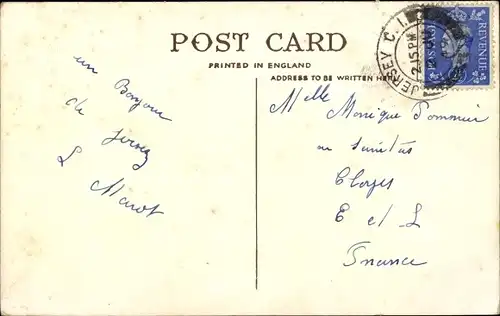 POST CARD
PRINTED IN ENGLAND
ADDRESS TO BE WRITTEN HERE
JERSEY C.I.
2.15 PM
POSTAGE
REVENUE
un Bonjour
de Jersey
L Marot
Melle Monique Pommier
au
Cloyes
E et L
France